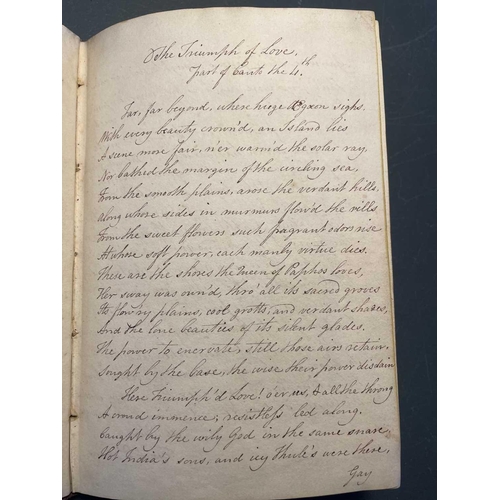 The Triumph of Love,
Part of Canto the 4th.
Far, far beyond, where huge Ægeon sighs.
With every beauty crown'd, an Island lies
A scene more fair, n'er warm'd the solar ray,
Nor bath'd the margin of the circling sea,
From the smooth plains, arose the verdant hills,
Along whose sides in murmurs flow'd the rills
From the sweet flowers such fragrant odors rise
At whose soft power, each manly virtue dies.
These are the shores the Queen of Paphos loves,
Her sway was own'd, thro' all its sacred groves
Its flow'ry plains, cool grotts, and verdant shades,
And the lone beauties of its silent glades.
The power to enervate, still those airs retain,
Sought by the base, the wise their power disdain
Here Triumph'd Love! o'er us, & all the throng
A croud immence, resistless led along,
Caught by the wily God in the same snare,
Hot India's sons, and icy Thule's were there,
Gay